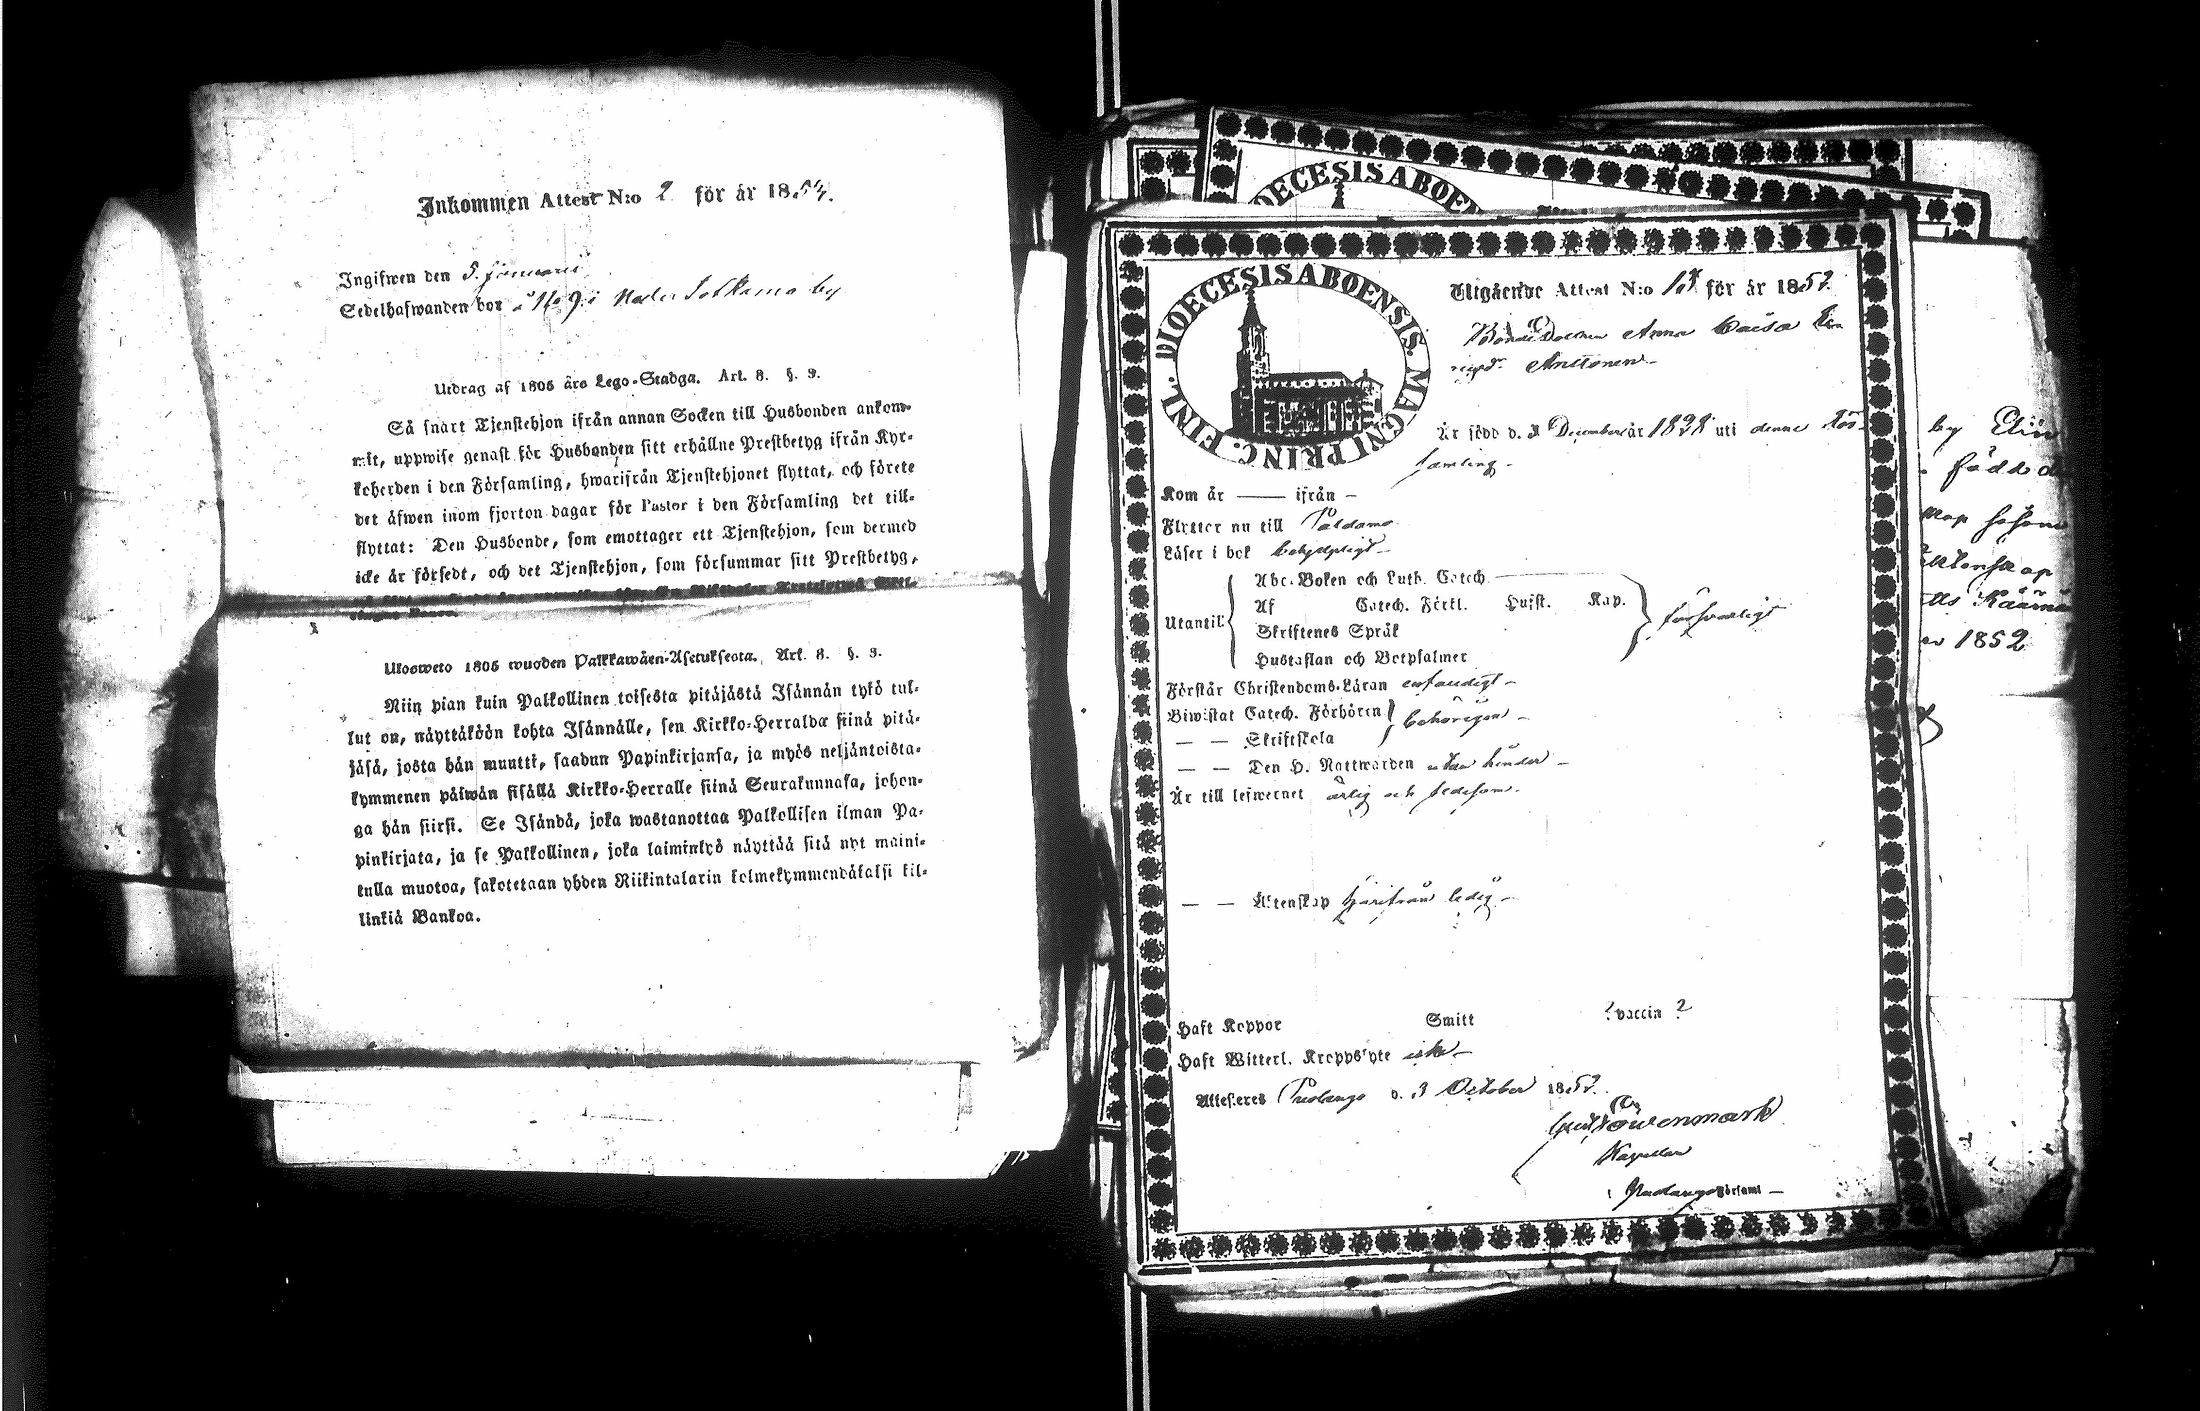 Inkommen Attest N:o 2 för år 1854.
Ingifwen den 5. Januari
Sedelhafwanden bor å No 9 i Neder Sotkamo by
Utdrag af 1805 års Lego-Stadga. Art. 8. §. 9.
Så snart Tjenstehjon ifrån annan Socken till Husbonden ankom-
mit, uppwise genast för Husbonden sitt erhållne Prestbetyg ifrån Kyr-
koherden i den Församling, hwarifrån Tjenstehjonet flyttat, och förete
det äfwen inom fjorton dagar för Pastor i den Församling det till-
flyttat: Den Husbonde, som emottager ett Tjenstehjon, som dermed
icke är försedt, och det Tjenstehjon, som försummar sitt Prestbetyg,
Ulosweto 1805 wuoden Palkkawäen-Asetuksesta. Art. 8. §. 9.
Niin pian kuin Palkollinen toisesta pitäjästä Isännän tykö tul-
lut on, näyttäköön kohta Isännälle, sen Kirkko-Herralda siinä pitä-
jäsä, josta hän muutti, saadun Papinkirjansa, ja myös neljäntoista-
kymmenen päiwän sisällä Kirkko-Herralle siinä Seurakunnasa, johon-
ga hän siirsi. Se Isändä, joka wastanottaa Palkollisen ilman Pa-
pinkirjata, ja se Palkollinen, joka laiminlyö näyttää sitä nyt maini-
tulla muotoa, sakotetaan yhden Riikintalarin kolmekymmendäkaksi kil-
linkiä Bankoa.
DIOECESIS ABOENSIS
DIOECESIS ABOENSIS. MAGNI PRINC. FINL.
Utgående Attest N:o för år 1852
Bonde Dottren Anna Caisa
Anttonen
Är född d. December år 1828 uti denna För-
samling
Kom år — ifrån —
Flyttar nu till Paldamo
Läser i bok behjelpligt
Abc-Boken och Luth. Catech.
Af Catech. Förkl. Hufst. Kap.
Utantil: försvarligt
Skriftenes Språk
Hustaflan och Botpsalmer
Förstår Christendoms-Läran enfaldigt
Biwistat Catech. Förhören behörigen
— — Skriftskola
— — Den H. Nattwarden utan hinder
Är till lefwernet ärlig och sedesam.
— — Äktenskap härifrån ledig
Haft Koppor Smitt Vaccin
Haft Witterl. Kroppslyte icke
Attesteras Pudasjärvi d. 3 October 1852.
Löwenmark
Kapellan
i Församl
by Elin
född d
Äktenskap
1852